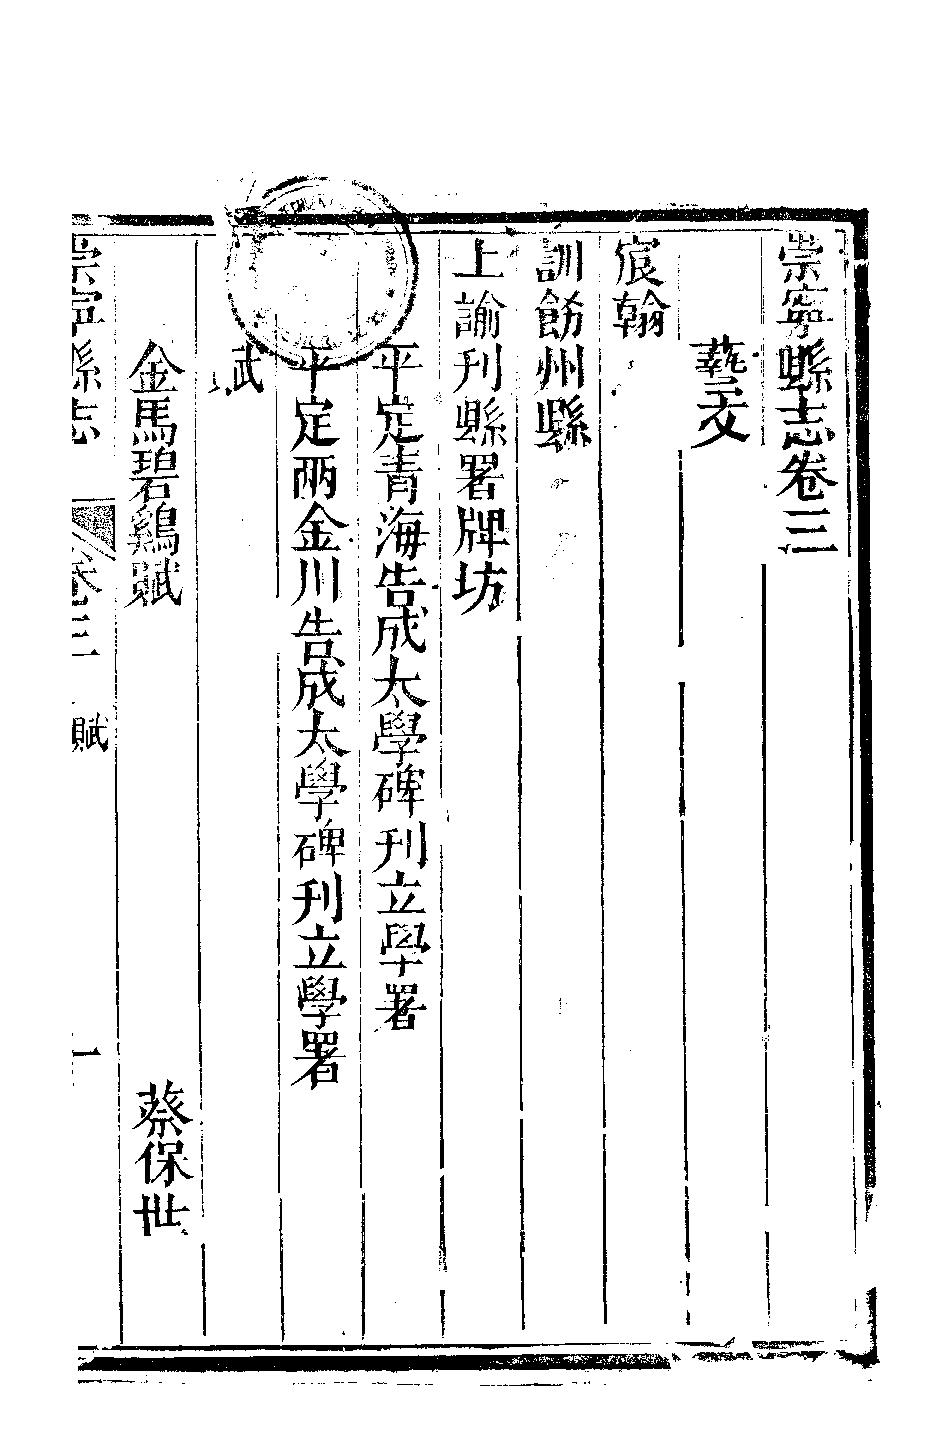 崇寧縣志卷三
藝文
宸翰
訓飭州縣
上諭刋縣署牌坊
平定青海告成太學碑刋立學署
平定兩金川告成太學碑刋立學署
賦
金馬碧鷄賦 蔡保世
崇寧縣志 卷三 賦 一